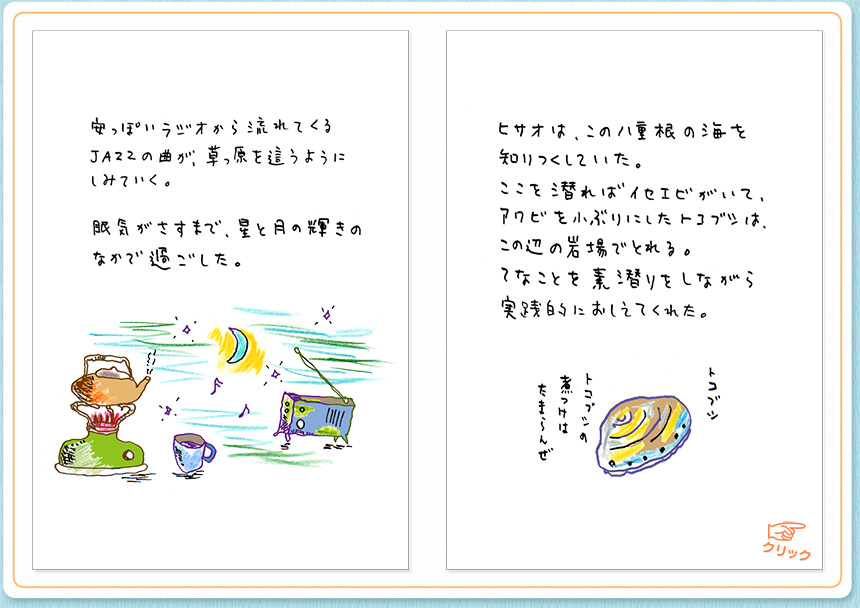 安っぽいラジオから流れてくる
JAZZの曲が、草っ原を這うように
しみていく。
眠気がさすまで、星と月の輝きの
なかで過ごした。
ヒサオは、この八重根の海を
知りつくしていた。
ここを潜ればイセエビがいて、
アワビを小ぶりにしたトコブシは、
この辺の岩場でとれる。
てなことを素潜りをしながら
実践的におしえてくれた。
トコブシ
トコブシの
煮つけは
たまらんぜ
クリック